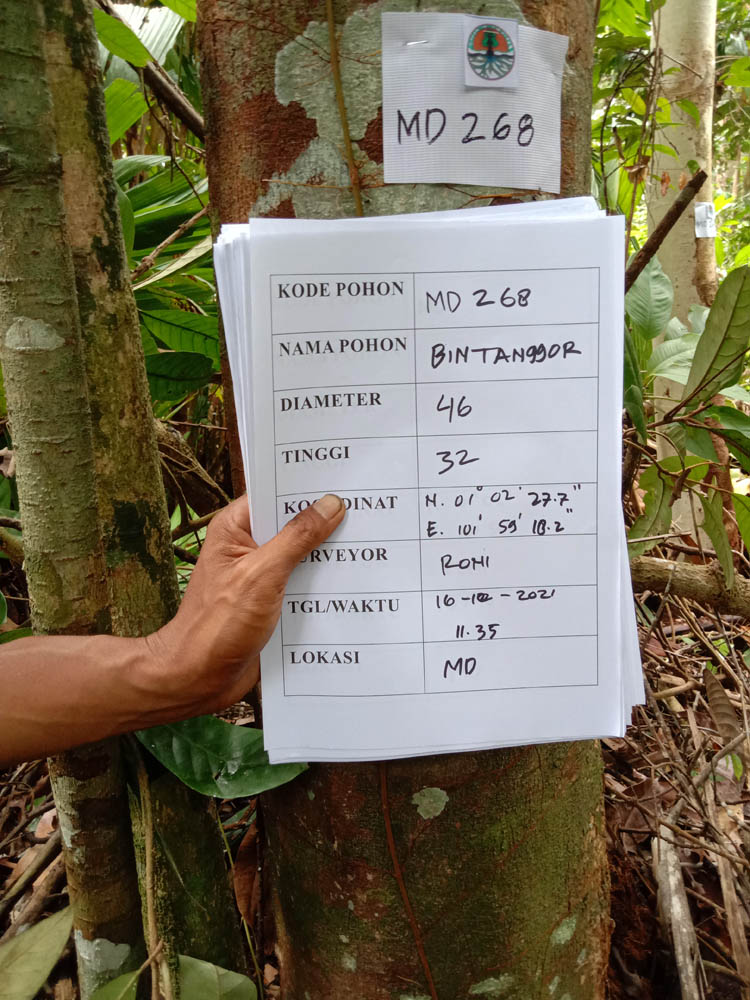 MD 268
KODE POHON MD 268
NAMA POHON BINTANGGOR
DIAMETER 46
TINGGI 32
KOORDINAT N. 01° 02' 27.7"
E. 101' 59' 18.2"
SURVEYOR ROMI
TGL/WAKTU 16-102-2021
11.35
LOKASI MD